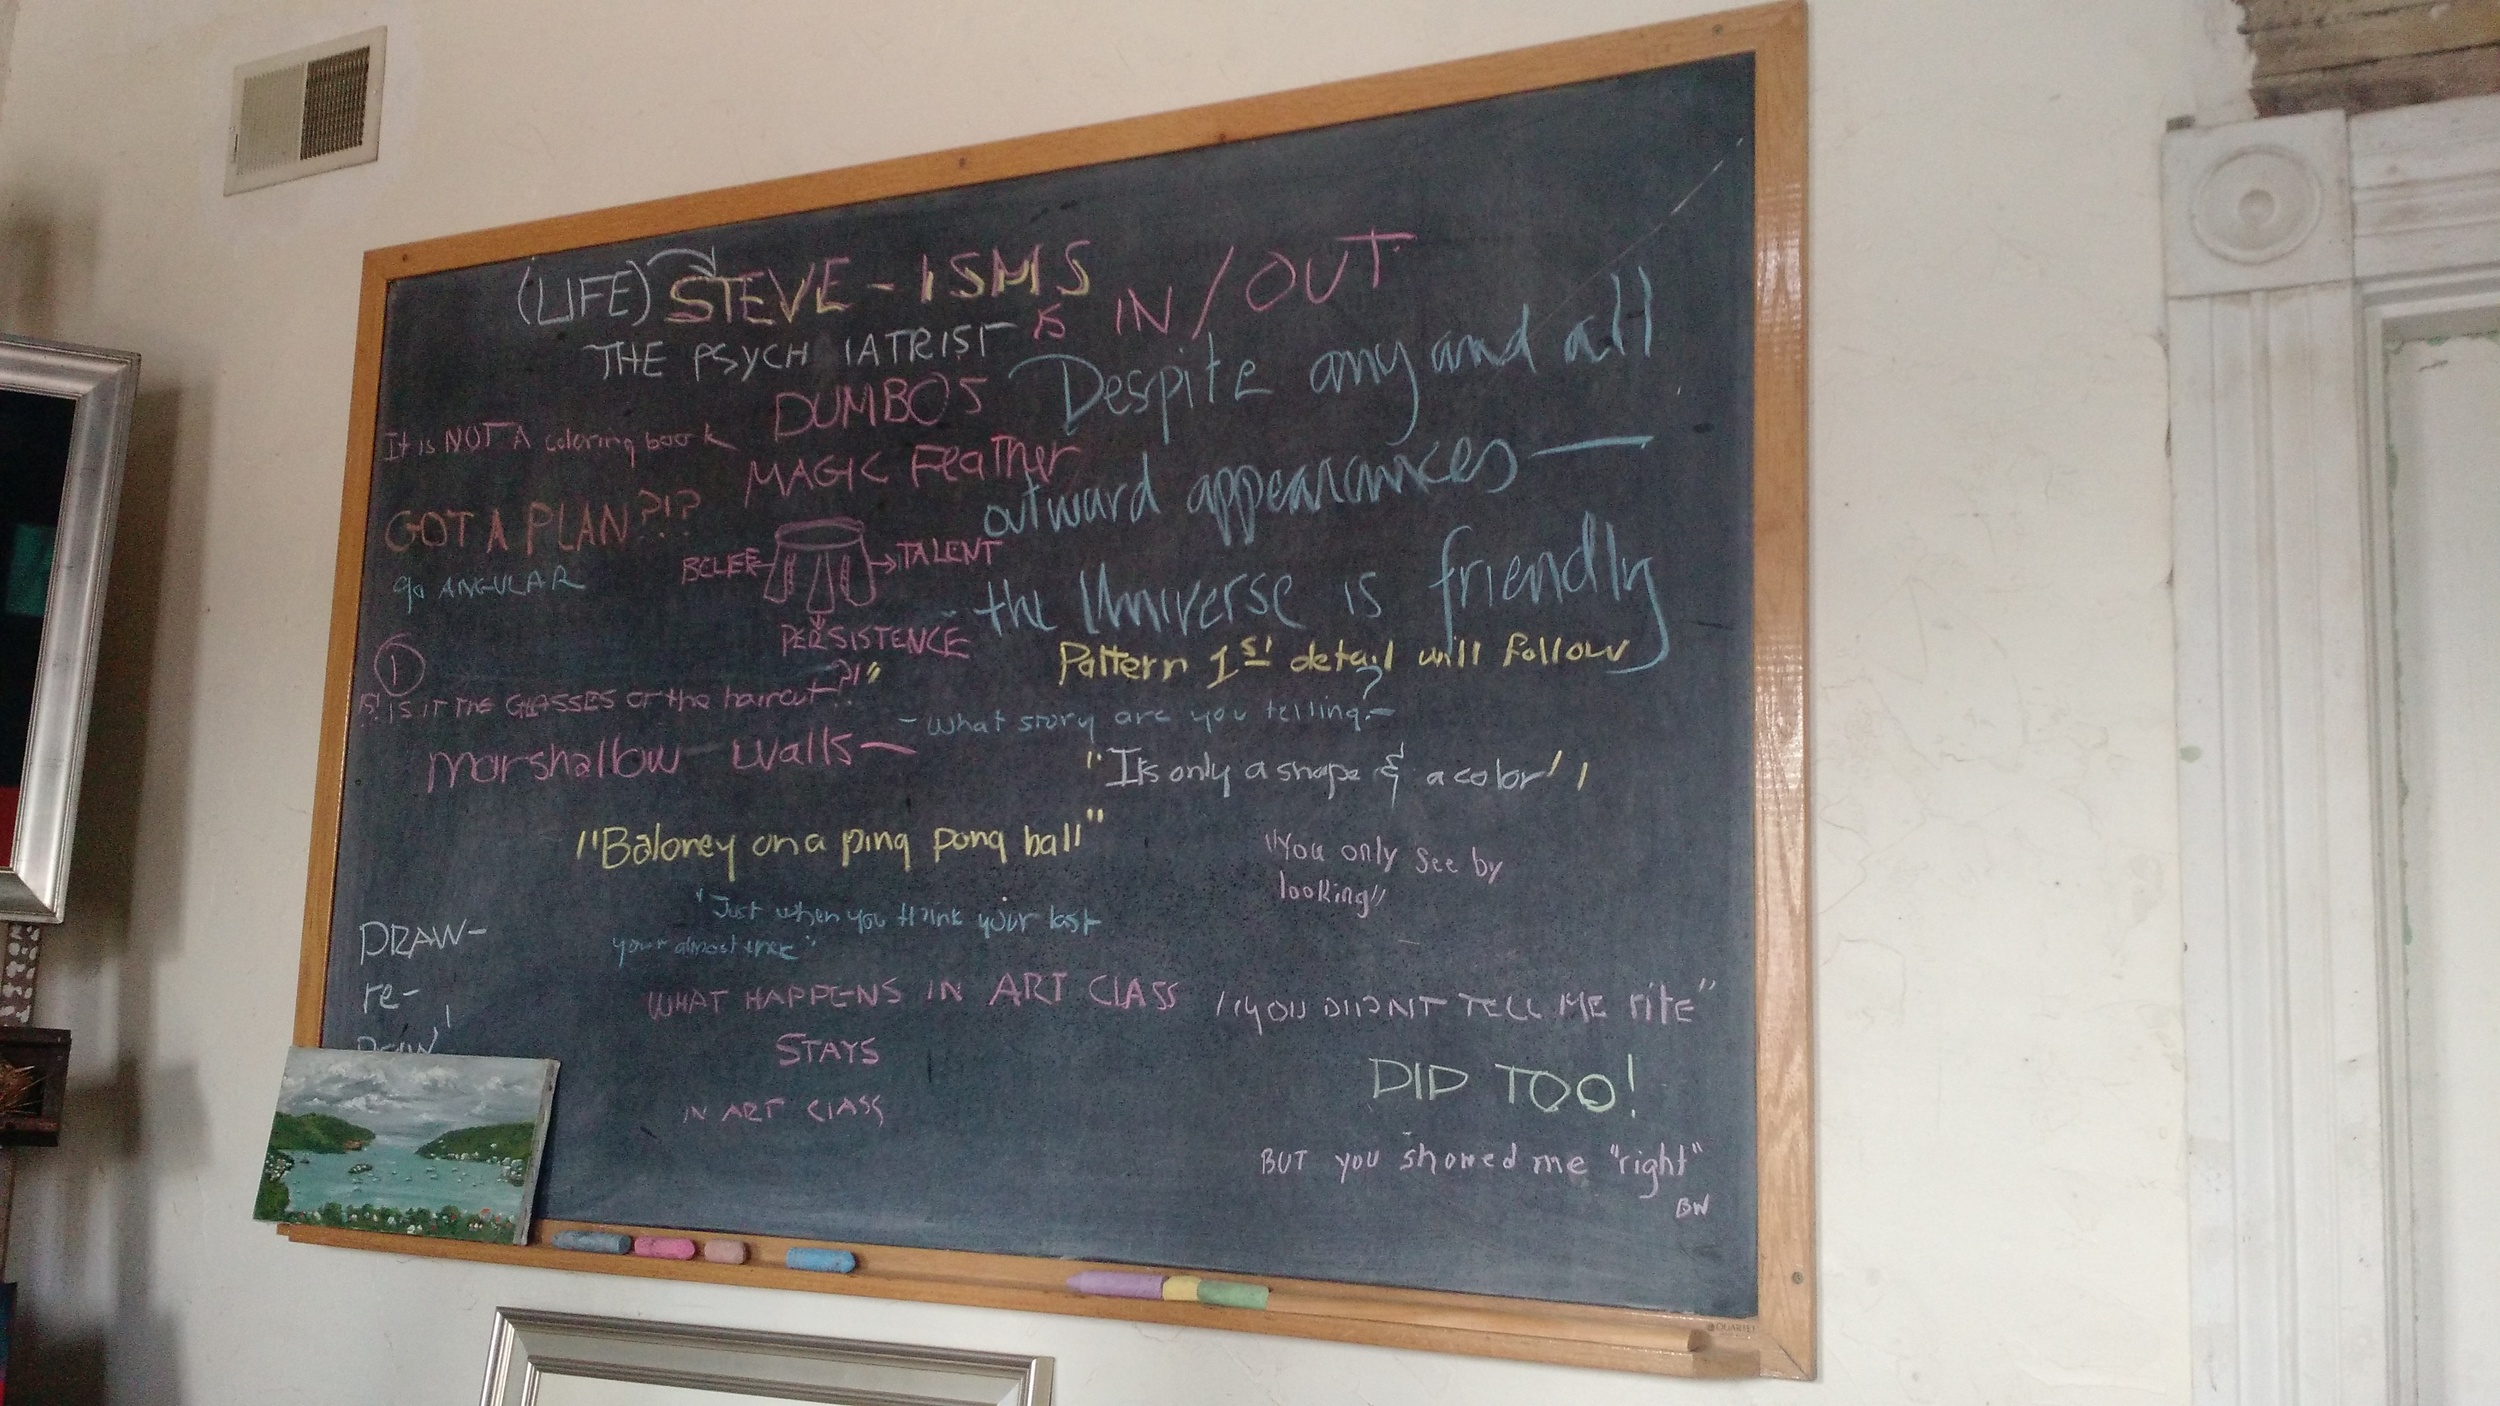 (LIFE) STEVE-ISMS
THE PSYCHIATRIST IS IN/OUT
DUMBOS
MAGIC FeaTher
It is NOT A coloring book
GOT A PLAN?!?
go ANGULAR
TALENT
PERSISTENCE
Despite any and all
outward appearances—
the Universe is friendly
Pattern 1st detail will follow
1
IS IT THE GLASSES or the haircut?!"
-What story are you telling?-
marshallow walls—
"Its only a shape & a color"
"Baloney on a ping pong ball"
"You only see by
looking"
"Just when you think your lost
your almost there"
DRAW-
re-
DRAW!
WHAT HAPPENS IN ART CLASS
STAYS
IN ART CLASS
"YOU DIDNT TELL ME rite"
DID TOO!
BUT you showed me "right"
BW
QUARTET